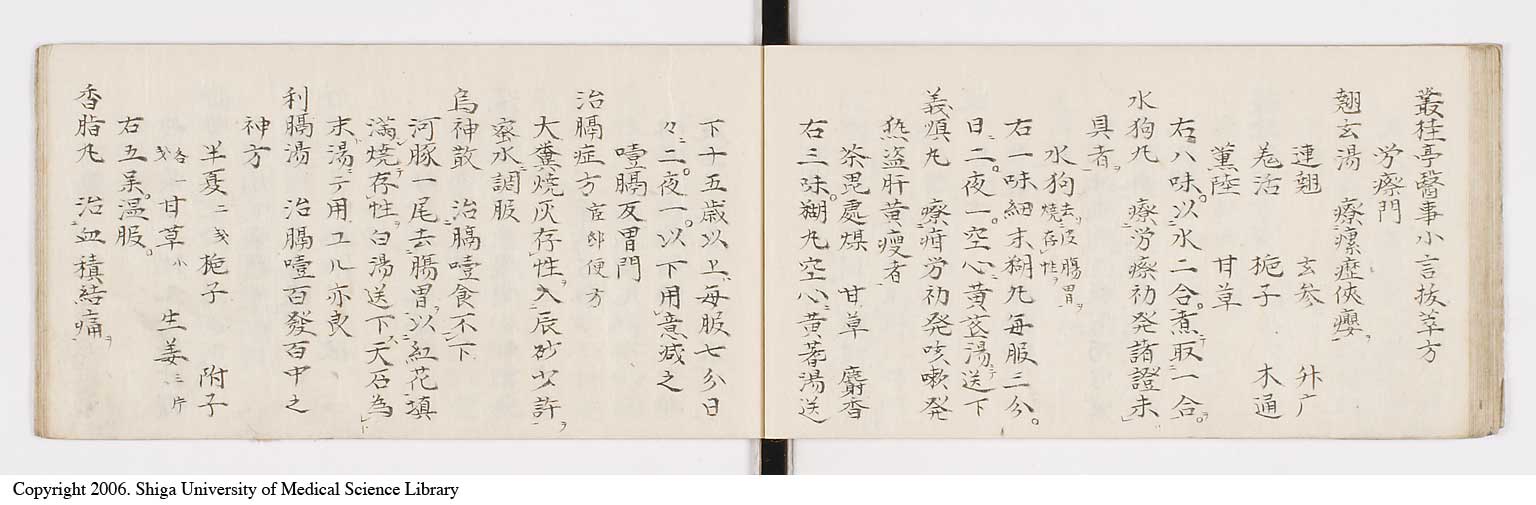 叢桂亭醫事小言抜萃方
労瘵門
翹玄湯 療瘰癧俠癭ヲ
連翹 玄参 升广
羗活 梔子 木通
薫陸 甘草
右八味以水二合煮取一合ヲ
水狗丸 療労瘵初発諸證未
具者
水狗去皮腸胃ヲ焼存性ヲ
右一味細末糊丸毎服三分
日二夜一空心黄茋湯ニテ送下
義順丸 療疳労初発咳嗽発
熱盗肝黄瘦者
茶毘處煤 甘草 麝香
右三味糊丸空心黄蓍湯送
下十五歳以上毎服七分日
々二夜一以下用意減之
噎膈反胃門
治膈症方 官郎便方
大糞焼灰存性ヲ入辰砂少許ヲ
蜜水調服
烏神散 治膈噎食不下
河豚一尾去腸胃ヲ以紅花填
満焼存性ヲ白湯送下天石為
末湯ニテ用エル亦良
利膈湯 治膈噎百發百中之
神方
半夏二戔 梔子 附子
各一戔 甘草小 生姜三片
右五呆温服
香脂丸 治血積結痛ヲ
Copyright 2006. Shiga University of Medical Science Library